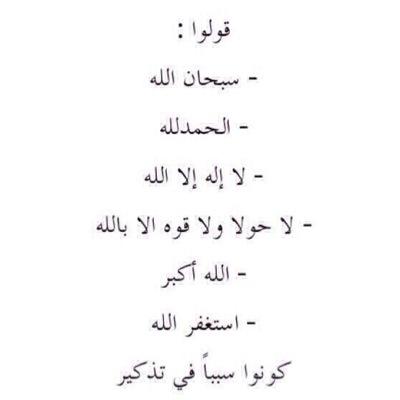 قولوا :
- سبحان الله
- الحمدلله
- لا إله إلا الله
- لا حولا ولا قوه الا بالله
- الله أكبر
- استغفر الله
كونوا سبباً في تذكير